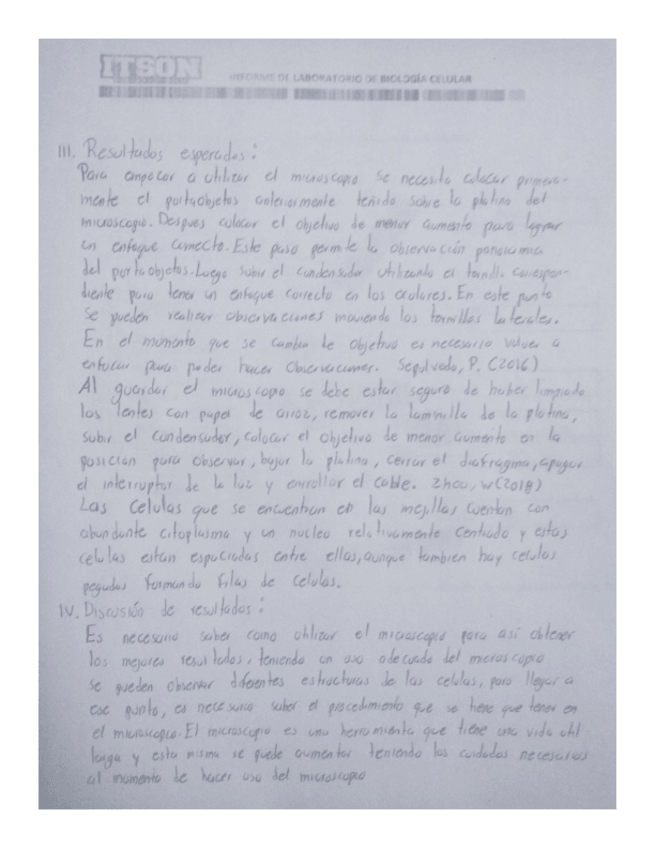 ITSON
INFORME DE LABORATORIO DE BIOLOGÍA CELULAR
III. Resultados esperados:
Para empezar a utilizar el microscopio se necesita colocar primera-
mente el portaobjetos anteriormente teñido sobre la platina del
microscopio. Despues colocar el objetivo de menor aumento para lograr
un enfoque correcto. Este paso permite la observación panoramica
del portaobjetos. Luego subir el condensador utilizando el tornillo correspon-
diente para tener un enfoque correcto en los oculares. En este punto
se pueden realizar observaciones moviendo los tornillos laterales.
En el momento que se cambia de objetivo es necesario volver a
enfocar para poder hacer observaciones. Sepulveda, P. (2016)
Al guardar el microscopio se debe estar seguro de haber limpiado
los lentes con papel de arroz, remover la laminilla de la platina,
subir el condensador, colocar el objetivo de menor aumento en la
posicion para observar, bajar la platina, cerrar el diafragma, apagar
el interruptor de la luz y enrollar el cable. Zhou, W (2018)
Las celulas que se encuentran en las mejillas cuentan con
abundante citoplasma y un nucleo relativamente centrado y estas
celulas estan espaciadas entre ellas, aunque tambien hay celulas
pegadas formando filas de celulas.
IV. Discusión de resultados:
Es necesario saber como utilizar el microscopio para asi obtener
los mejores resultados, teniendo un uso adecuado del microscopio
se pueden observar diferentes estructuras de las celulas, para llegar a
ese punto, es necesario saber el procedimiento que se tiene que tener en
el microscopio. El microscopio es una herramienta que tiene una vida util
larga y esta misma se puede aumentar teniendo los cuidados necesarios
al momento de hacer uso del microscopio